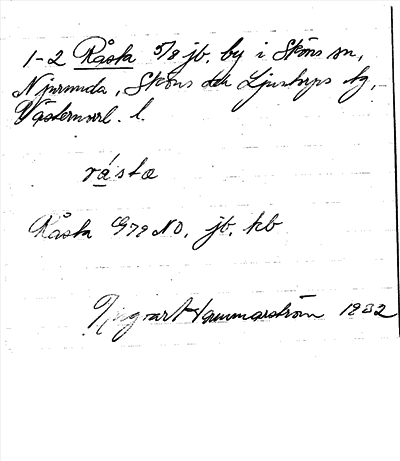 1-2 Råsta 5/8 jb. by i Sköns sn,
Njurunda, Sköns och Ljustorps tg,
Västernorrl. l.
råsta
Råsta G79 NO, jb, kb
Ingvart Hammarström 1932